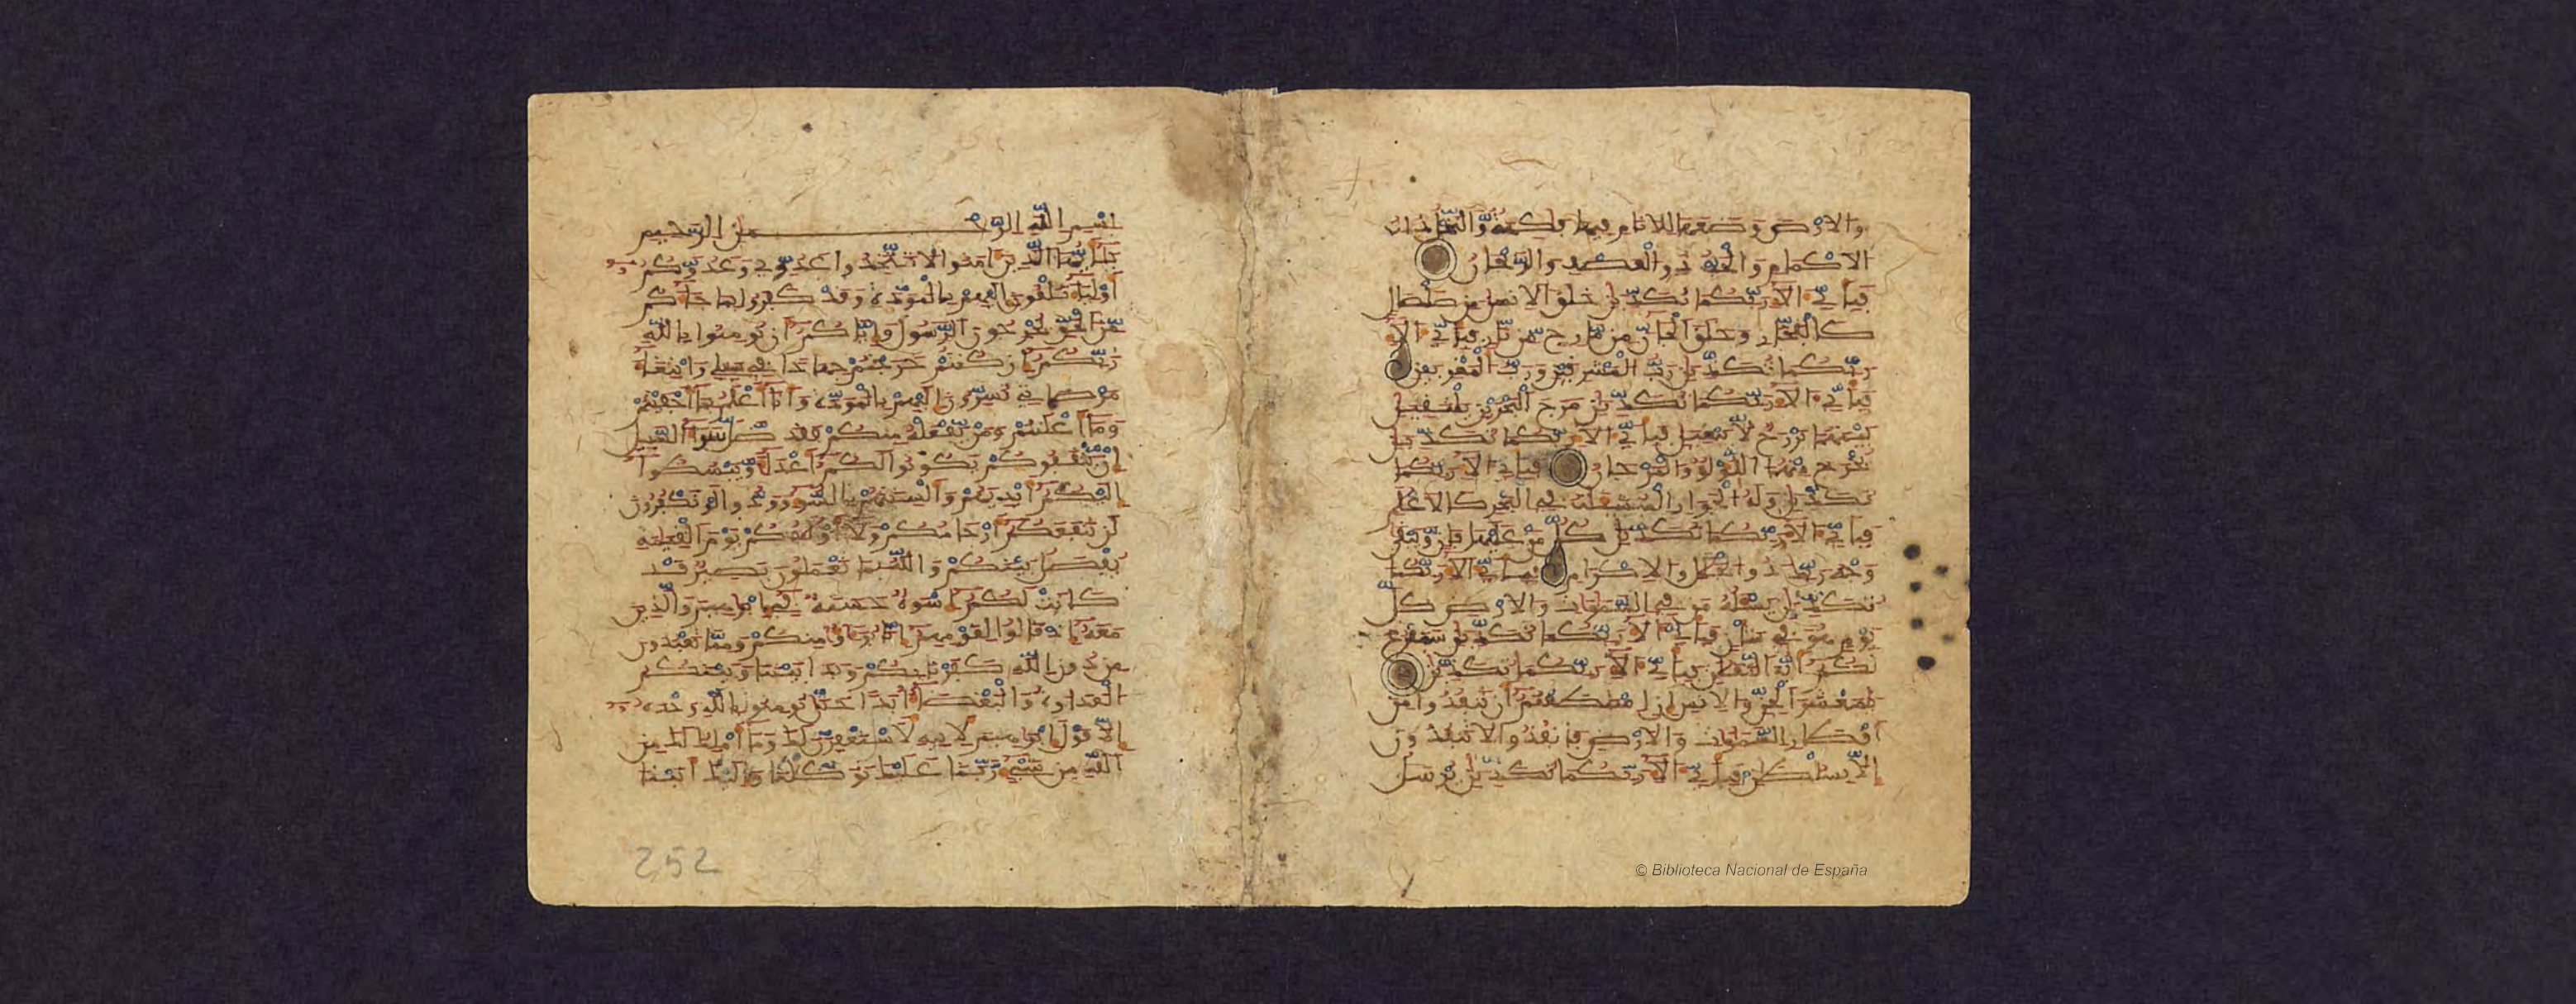 والارض وضعها للانام فيها فكهة والنخل ذات
الاكمام والحب ذو العصف والريحان
فباي الا ربكما تكذبن خلق الانسن من صلصل
كالفخار وخلق الجان من مارج من نار فباي الا
ربكما تكذبن رب المشرقين ورب المغربين
فباي الا ربكما تكذبن مرج البحرين يلتقين
بينهما برزخ لا يبغين فباي الا ربكما تكذبن
يخرج منهما اللؤلؤ والمرجان فباي الا ربكما
تكذبن وله الجوار المنشئت في البحر كالاعلم
فباي الا ربكما تكذبن كل من عليها فان ويبقى
وجه ربك ذو الجلل والاكرام فباي الا ربكما
تكذبن يسئله من في السموت والارض كل
يوم هو في شان فباي الا ربكما تكذبن سنفرغ
لكم ايه الثقلن فباي الا ربكما تكذبن
يمعشر الجن والانس ان استطعتم ان تنفذوا من
اقطار السموت والارض فانفذوا لا تنفذون
الا بسلطن فباي الا ربكما تكذبن يرسل
بسم الله الرحمن الرحيم
يايها الذين امنوا لا تتخذوا عدوي وعدوكم
اوليا تلقون اليهم بالمودة وقد كفروا بما جاكم
من الحق يخرجون الرسول واياكم ان تومنوا بالله
ربكم ان كنتم خرجتم جهدا في سبيلي وابتغا
مرضاتي تسرون اليهم بالمودة وانا اعلم بما اخفيتم
وما اعلنتم ومن يفعله منكم فقد ضل سوا السبيل
ان يثقفوكم يكونوا لكم اعدا ويبسطوا
اليكم ايديهم والسنتهم بالسو وودوا لو تكفرون
لن تنفعكم ارحامكم ولا اولدكم يوم القيمة
يفصل بينكم والله بما تعملون بصير قد
كانت لكم اسوة حسنة في ابرهيم والذين
معه اذ قالوا لقومهم انا برءؤا منكم ومما تعبدون
من دون الله كفرنا بكم وبدا بيننا وبينكم
العدوة والبغضا ابدا حتى تومنوا بالله وحده
الا قول ابرهيم لابيه لاستغفرن لك وما املك لك من
الله من شي ربنا عليك توكلنا واليك انبنا
252
© Biblioteca Nacional de España